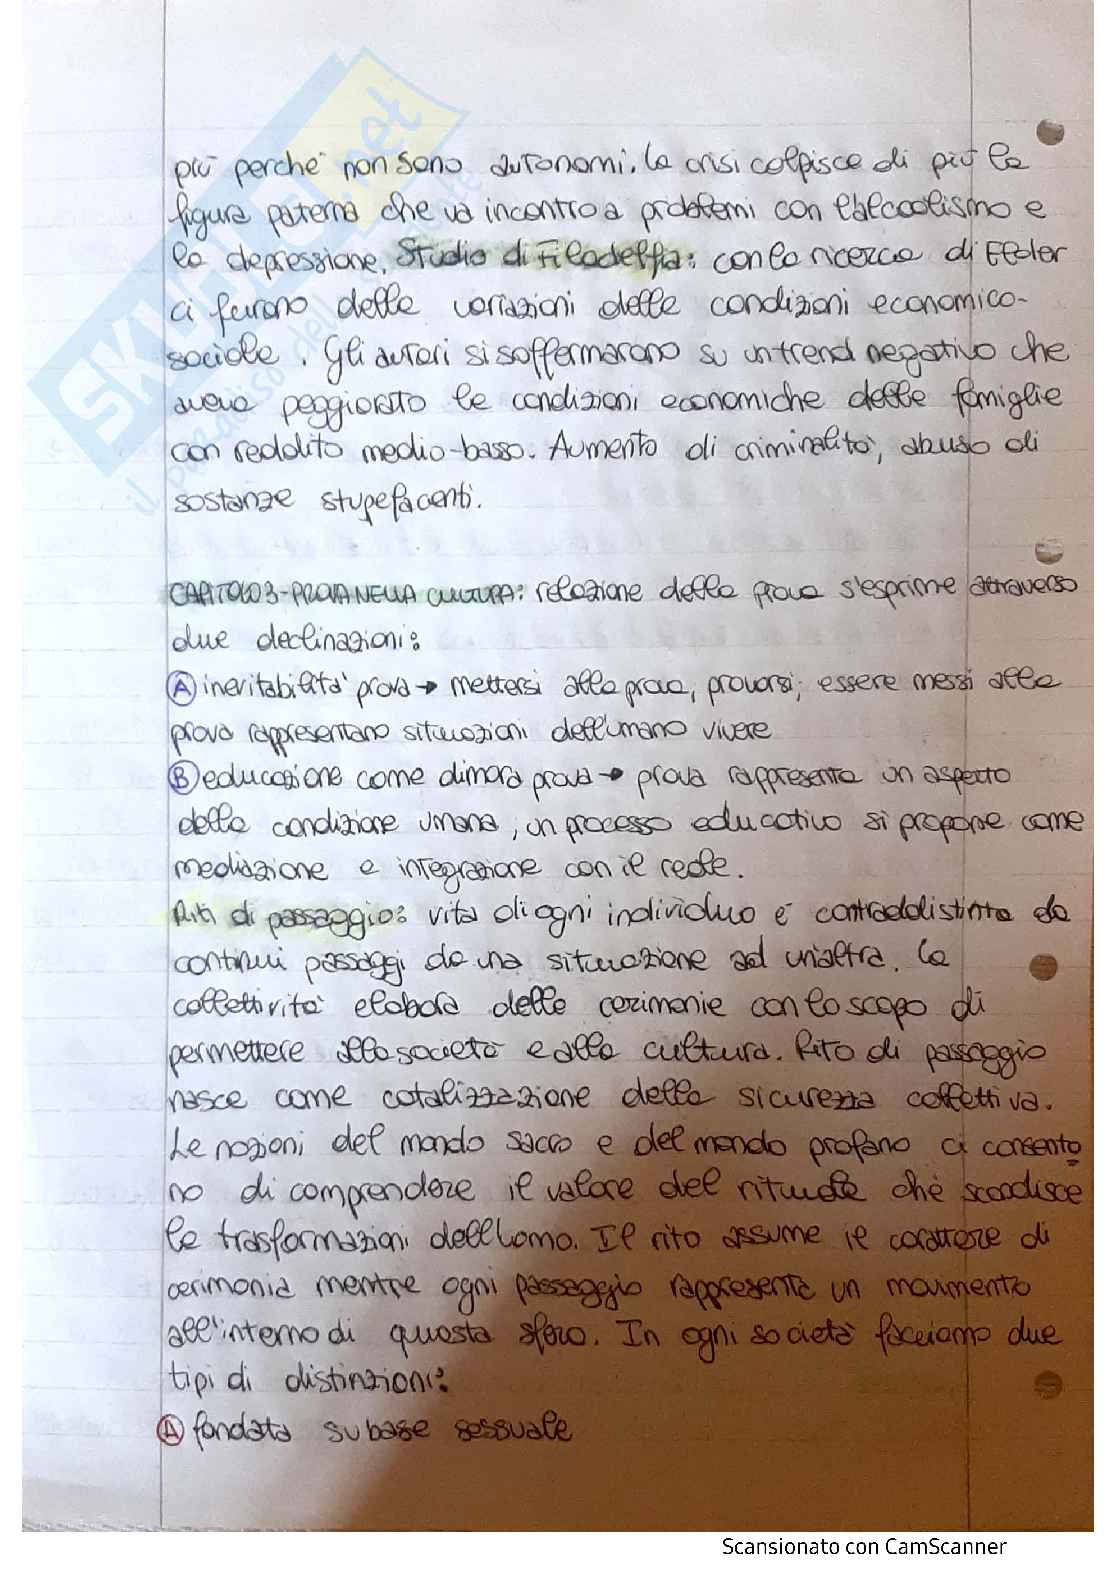 più perche' non sono autonomi. la crisi colpisce di più la
figura paterna che va incontro a problemi con l'alcoolismo e
la depressione. Studio di Filadelfia: con la ricerca di Elder
ci furono delle variazioni delle condizioni economico-
sociale. Gli autori si soffermarono su un trend negativo che
aveva peggiorato le condizioni economiche delle famiglie
con reddito medio-basso. Aumento di criminalità, abuso di
sostanze stupefacenti.
CAPITOLO 3-PROVA NELLA CULTURA: relazione della prova s'esprime attraverso
due declinazioni:
A inevitabilita' prova → mettersi alla prova, provarsi, essere messi alla
prova rappresentano situazioni dell'umano vivere
B educazione come dimora prova → prova rappresenta un aspetto
della condizione umana, un processo educativo si propone come
mediazione e integrazione con il reale.
Riti di passaggio: vita di ogni individuo è contraddistinta da
continui passaggi da una situazione ad un'altra. la
collettività elabora delle cerimonie con lo scopo di
permettere alla società e alla cultura. Rito di passaggio
nasce come catalizzazione della sicurezza collettiva.
Le nozioni del mondo sacro e del mondo profano ci consento
no di comprendere il valore del rituale che scandisce
le trasformazioni dell'uomo. Il rito assume il carattere di
cerimonia mentre ogni passaggio rappresenta un movimento
all'interno di questa sfera. In ogni società facciamo due
tipi di distinzioni:
A fondata su base sessuale
SKUOLA.net
il paradiso dello studente
Scansionato con CamScanner